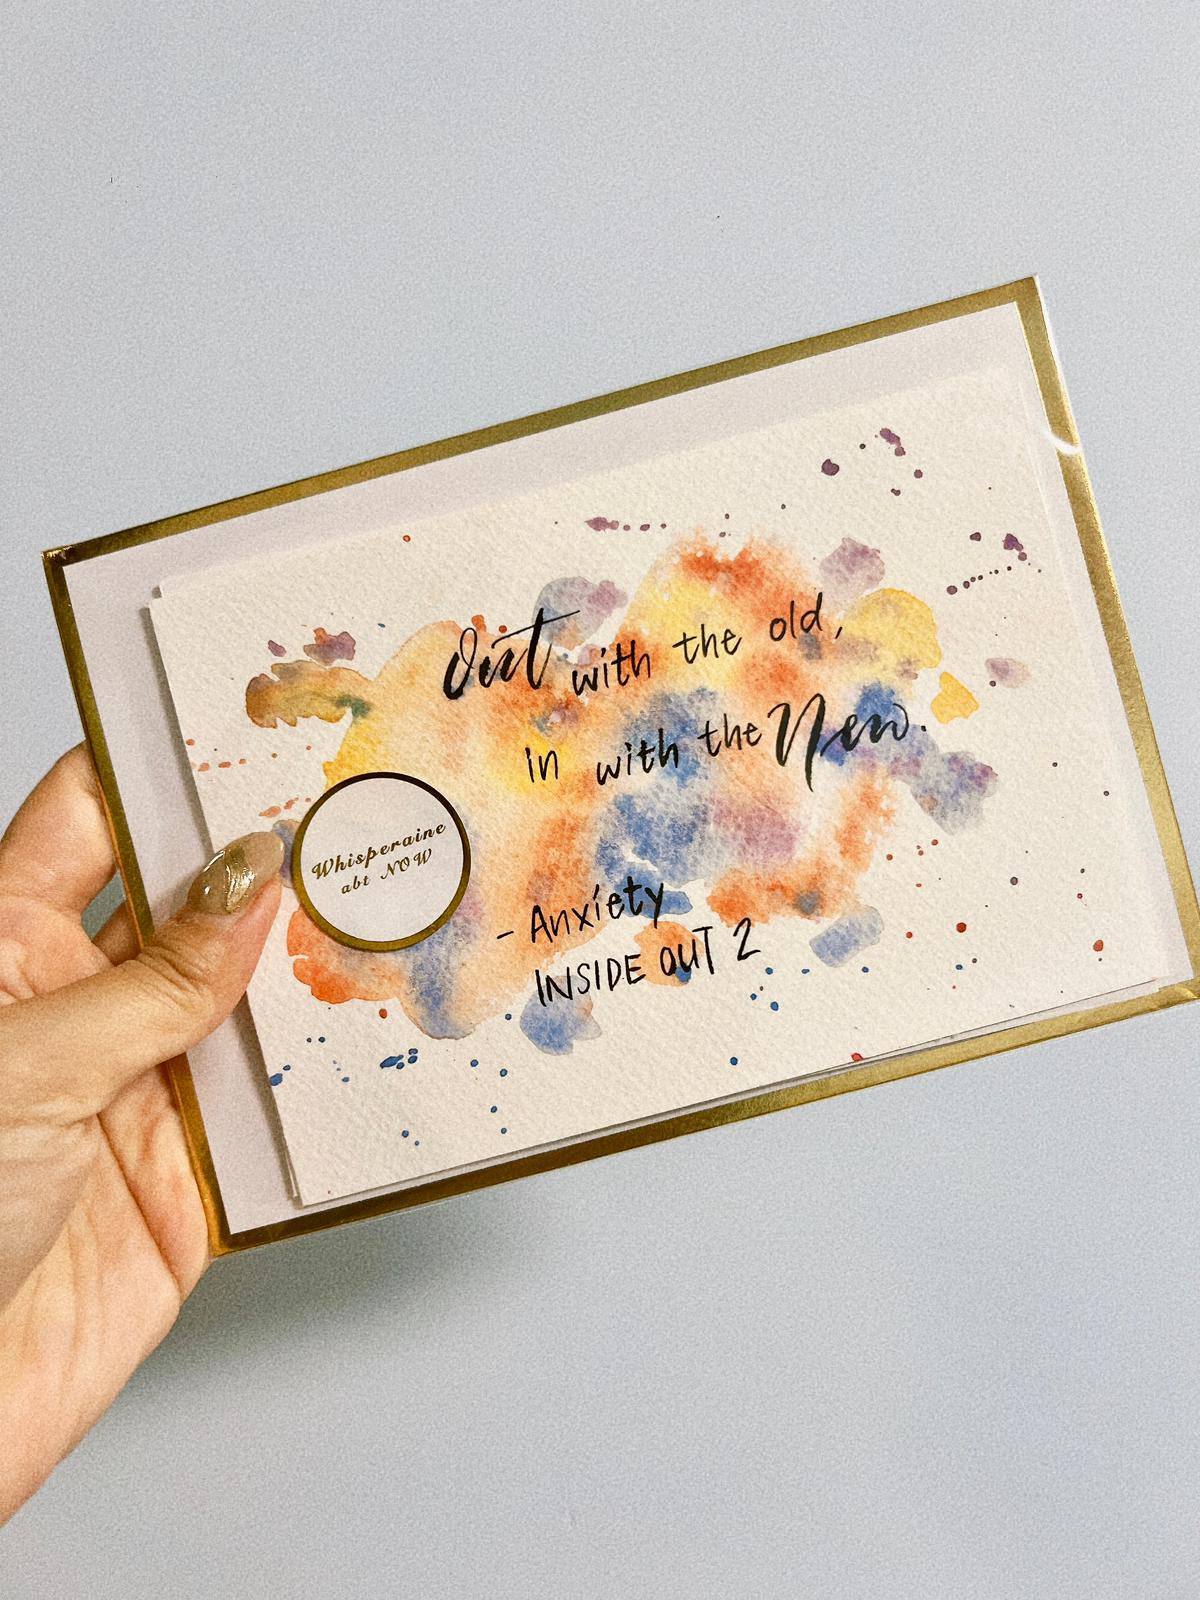 Out with the old,
in with the New.
Whisperaine
abt NOW
- Anxiety
INSIDE OUT 2